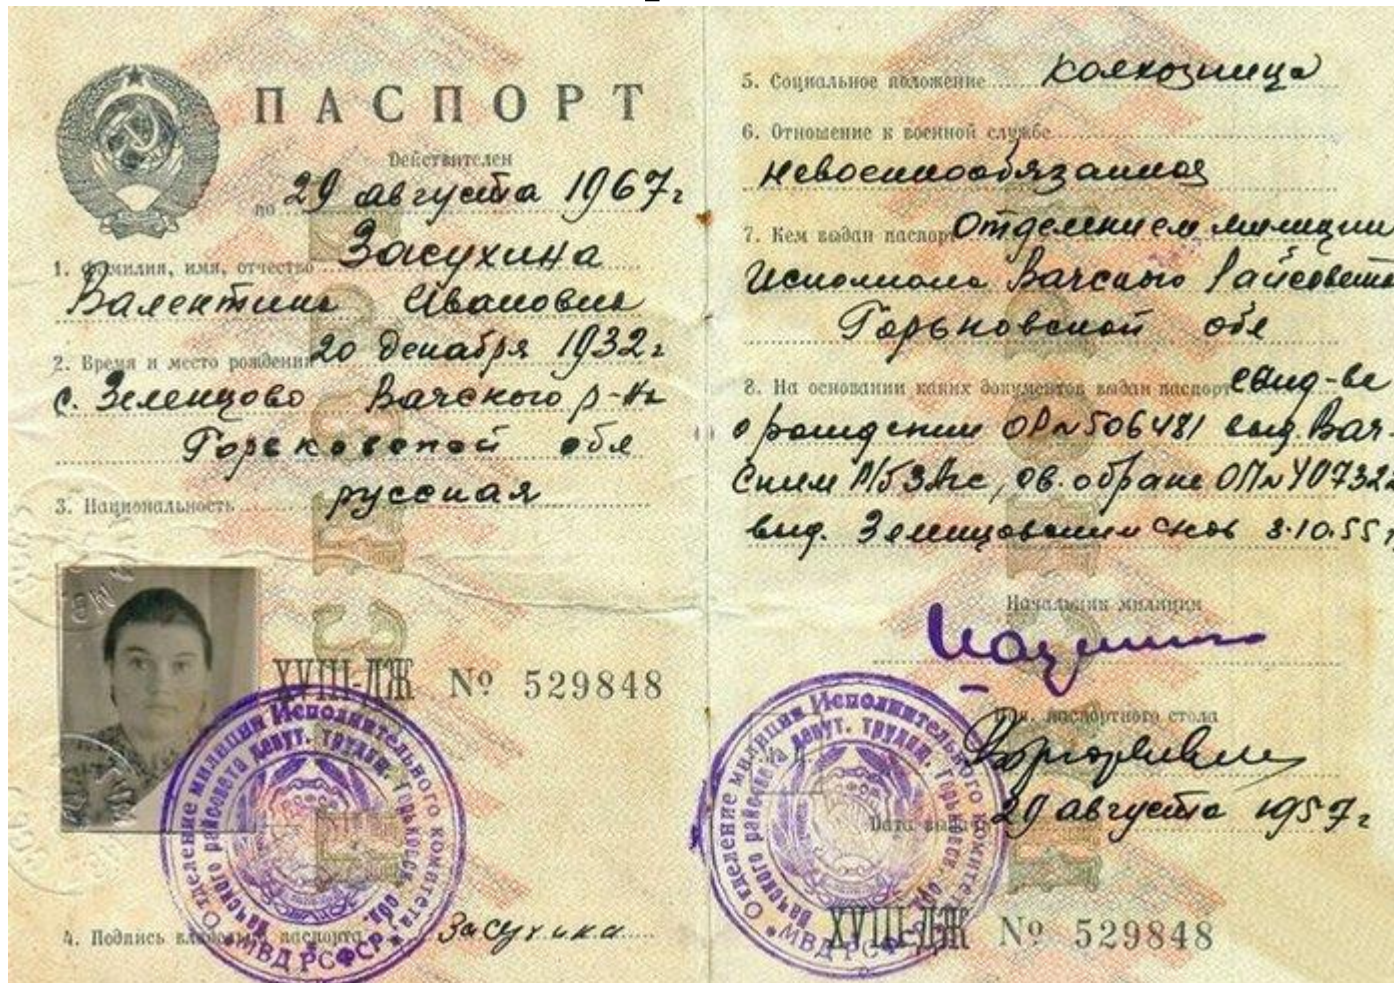 ПАСПОРТ
Действителен
по 29 августа 1967г
1. Фамилия, имя, отчество Засухина
Валентина Ивановна
2. Время и место рождения 20 декабря 1932г
с. Зеленцово Вачского р-на
Горьковской обл
3. Национальность русская
XVIII-ЛЖ № 529848
Отделение милиции Исполнительного комитета
Вачского райсовета депут. трудящ. Горьковск. обл.
МВД РСФСР
4. Подпись владельца паспорта Засухина
5. Социальное положение колхозница
6. Отношение к военной службе
невоеннообязанная
7. Кем выдан паспорт отделением милиции
Исполкома Вачского Райсовета
Горьковской обл
8. На основании каких документов выдан паспорт свид-ве
о рождении ОР№506481 выд. Вач-
ским Р/б ЗАГС,
выд. 8.10.55г
Начальник милиции
Нач. паспортного стола
Дата выдачи 29 августа 1957г
Отделение милиции Исполнительного комитета
Вачского райсовета депут. трудящ. Горьковск. обл.
МВД РСФСР
XVIII-ЛЖ № 529848